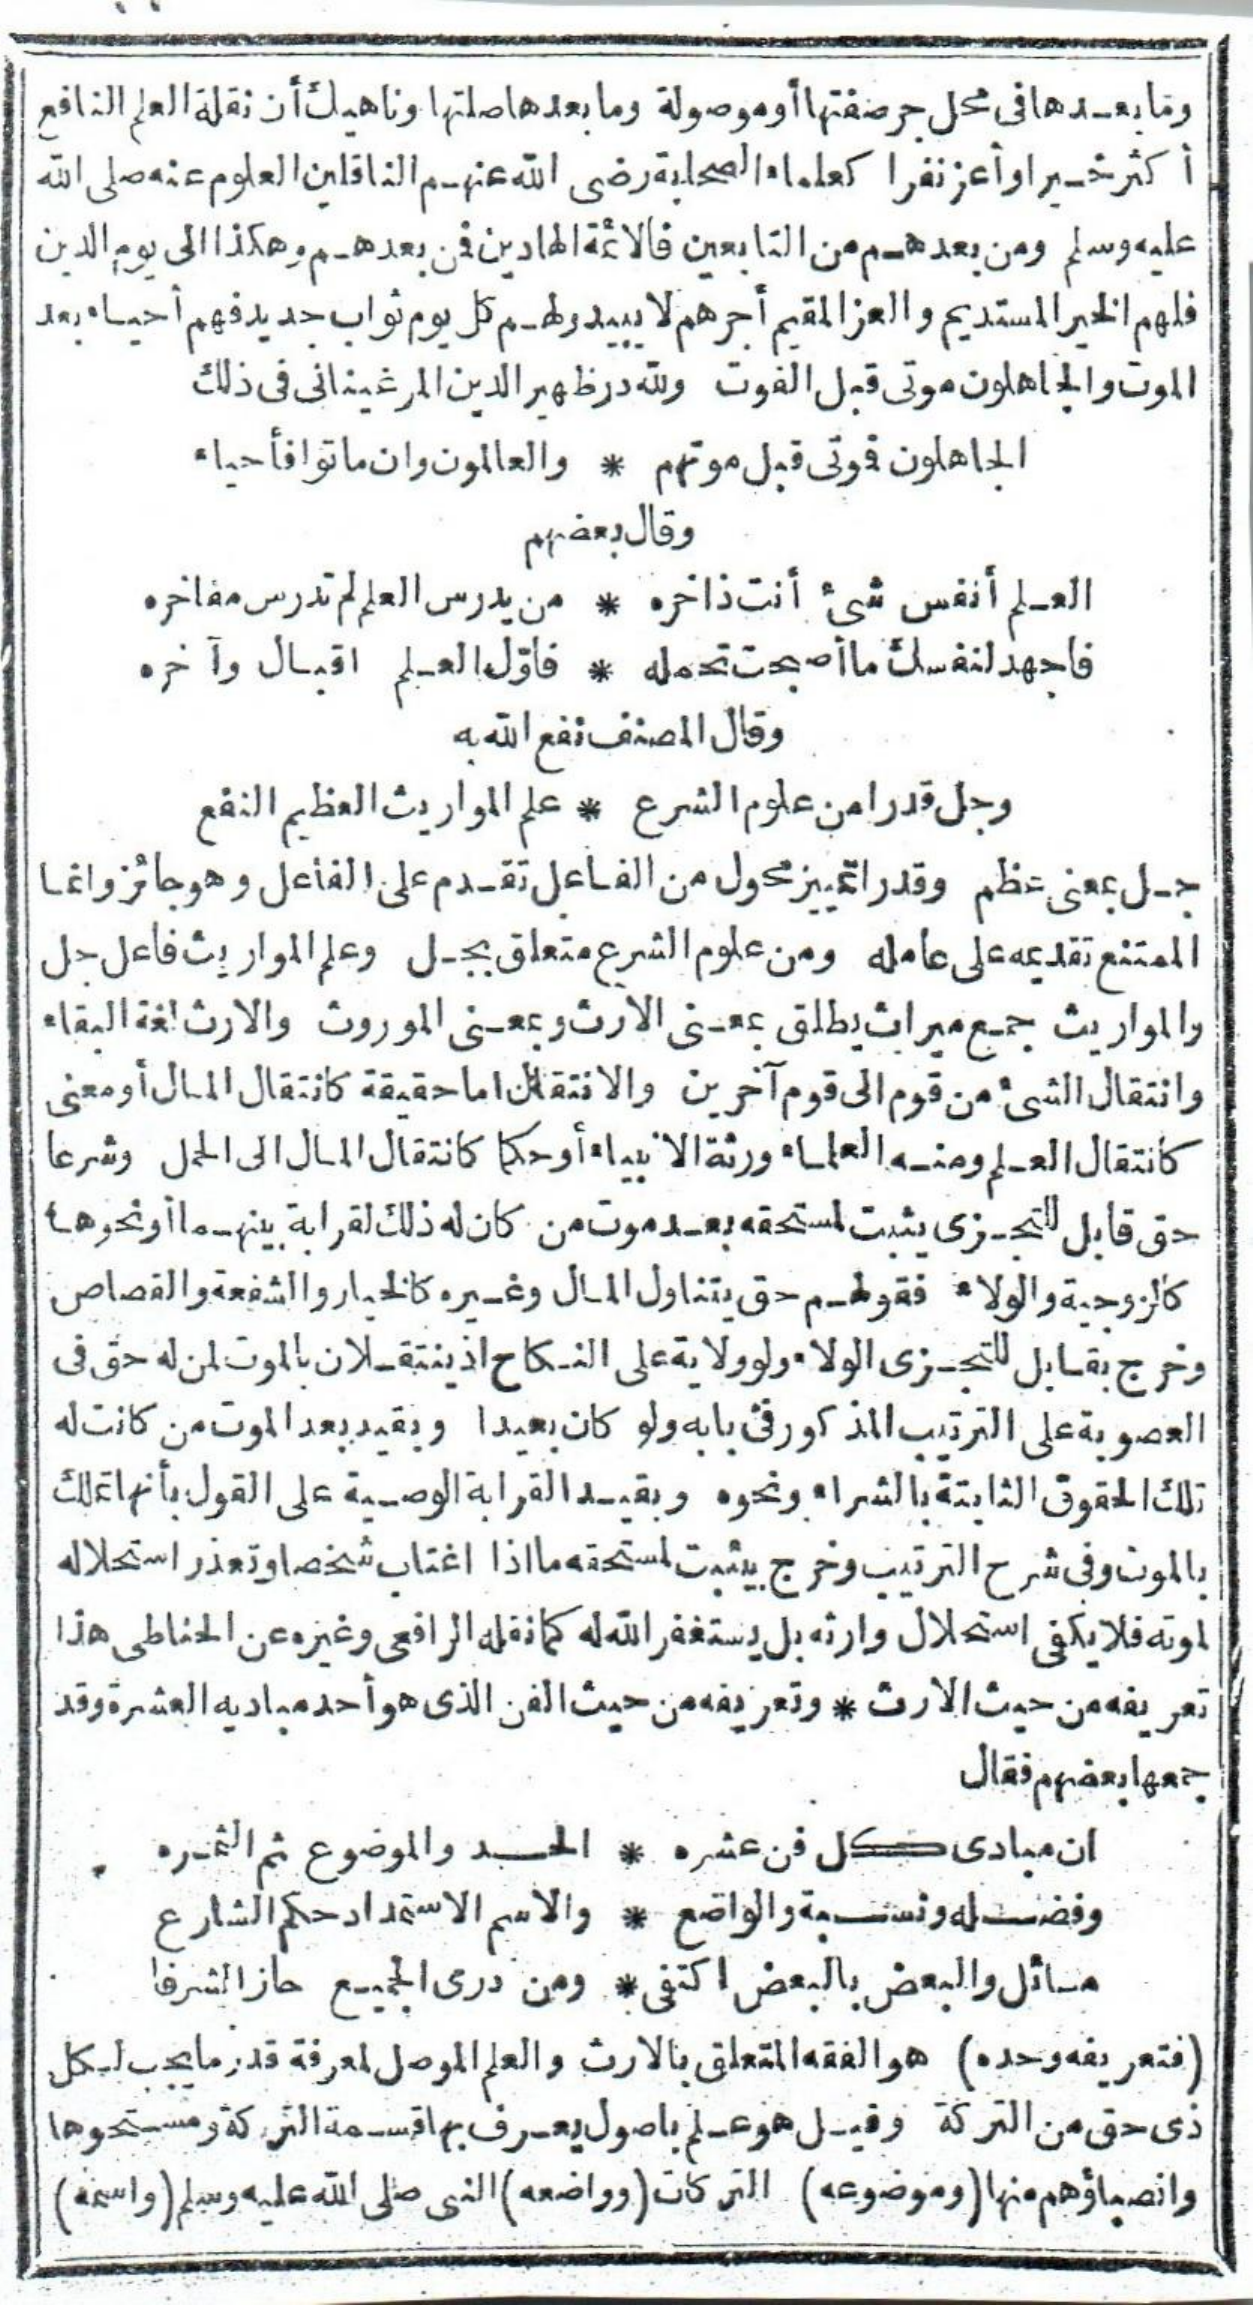 وما بعدها في محل جر صفتها أو موصولة وما بعدها صلتها وناهيك أن نقلة العلم النافع
أكثر خيرا وأعز نفرا كعلماء الصحابة رضى الله عنهم الناقلين العلوم عنه صلى الله
عليه وسلم ومن بعدهم من التابعين فالائمة الهادين فمن بعدهم وهكذا الى يوم الدين
فلهم الخير المستديم والعز المقيم أجرهم لا يبيد ولهم كل يوم ثواب جديد فهم أحياء بعد
الموت والجاهلون موتى قبل الفوت ولله در ظهير الدين المرغينانى فى ذلك
الجاهلون فموتى قبل موتهم * والعالمون وان ماتوا فأحياء
وقال بعضهم
العلم أنفس شئ أنت ذاخره * من يدرس العلم لم تدرس مفاخره
فاجهد لنفسك ما أصبحت تحمله * فاوّل العلم اقبال وآخره
وقال المصنف نفع الله به
وجل قدرا من علوم الشرع * علم المواريث العظيم النفع
جل بمعنى عظم وقدرا تمييز محول من الفاعل تقدم على الفاعل وهو جائز وانما
الممتنع تقديمه على عامله ومن علوم الشرع متعلق بجل وعلم المواريث فاعل جل
والمواريث جمع ميراث يطلق بمعنى الارث وبمعنى الموروث والارث لغة البقاء
وانتقال الشئ من قوم الى قوم آخرين والانتقال اما حقيقة كانتقال المال أو معنى
كانتقال العلم ومنه العلماء ورثة الانبياء أو حكما كانتقال المال الى الحمل وشرعا
حق قابل للتجزى يثبت لمستحقه بعد موت من كان له ذلك لقرابة بينهما أو نحوها
كالزوجية والولاء فقولهم حق يتناول المال وغيره كالخيار والشفعة والقصاص
وخرج بقابل للتجزى الولاء ولو ولاية على النكاح اذ ينتقلان بالموت لمن له حق فى
العصوبة على الترتيب المذكور فى بابه ولو كان بعيدا وبقيد بعد الموت من كانت له
تلك الحقوق الثابتة بالشراء ونحوه وبقيد القرابة الوصية على القول بأنها تملك
بالموت وفى شرح الترتيب وخرج بيثبت لمستحقه ما اذا اغتاب شخصا وتعذر استحلاله
لموته فلا يكفى استحلال وارثه بل يستغفر الله له كما نقله الرافعى وغيره عن الحناطى هذا
تعريفه من حيث الارث * وتعريفه من حيث الفن الذى هو أحد مباديه العشرة وقد
جمعها بعضهم فقال
ان مبادى كل فن عشره * الحد والموضوع ثم الثمره
وفضله ونسبة والواضع * والاسم الاستمداد حكم الشارع
مسائل والبعض بالبعض اكتفى * ومن درى الجميع حاز الشرفا
(فتعريفه وحده) هو الفقه المتعلق بالارث والعلم الموصل لمعرفة قدر ما يجب لكل
ذى حق من التركة وقيل هو علم باصول يعرف بها قسمة التركة ومستحقوها
وانصباؤهم منها (وموضوعه) التركات (وواضعه) النبى صلى الله عليه وسلم (واسمه)